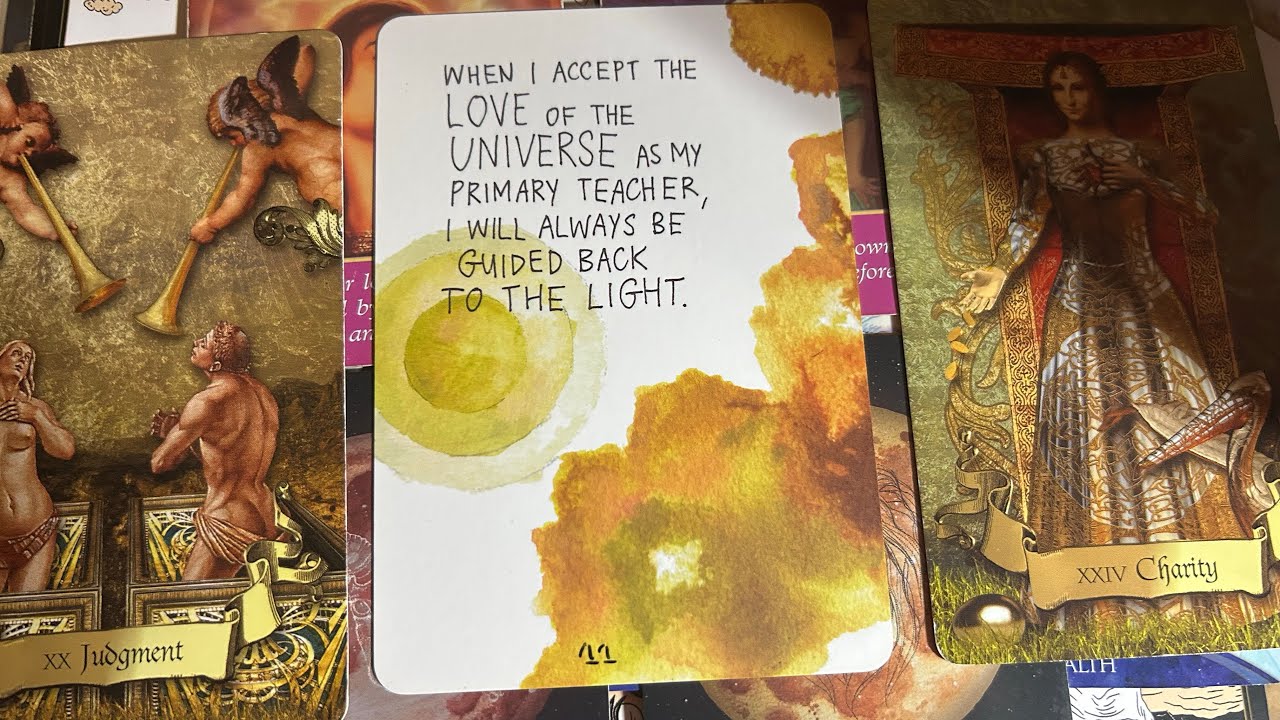 WHEN I ACCEPT THE
LOVE OF THE
UNIVERSE AS MY
PRIMARY TEACHER,
I WILL ALWAYS BE
GUIDED BACK
TO THE LIGHT.
11
XX Judgment
XXIV Charity